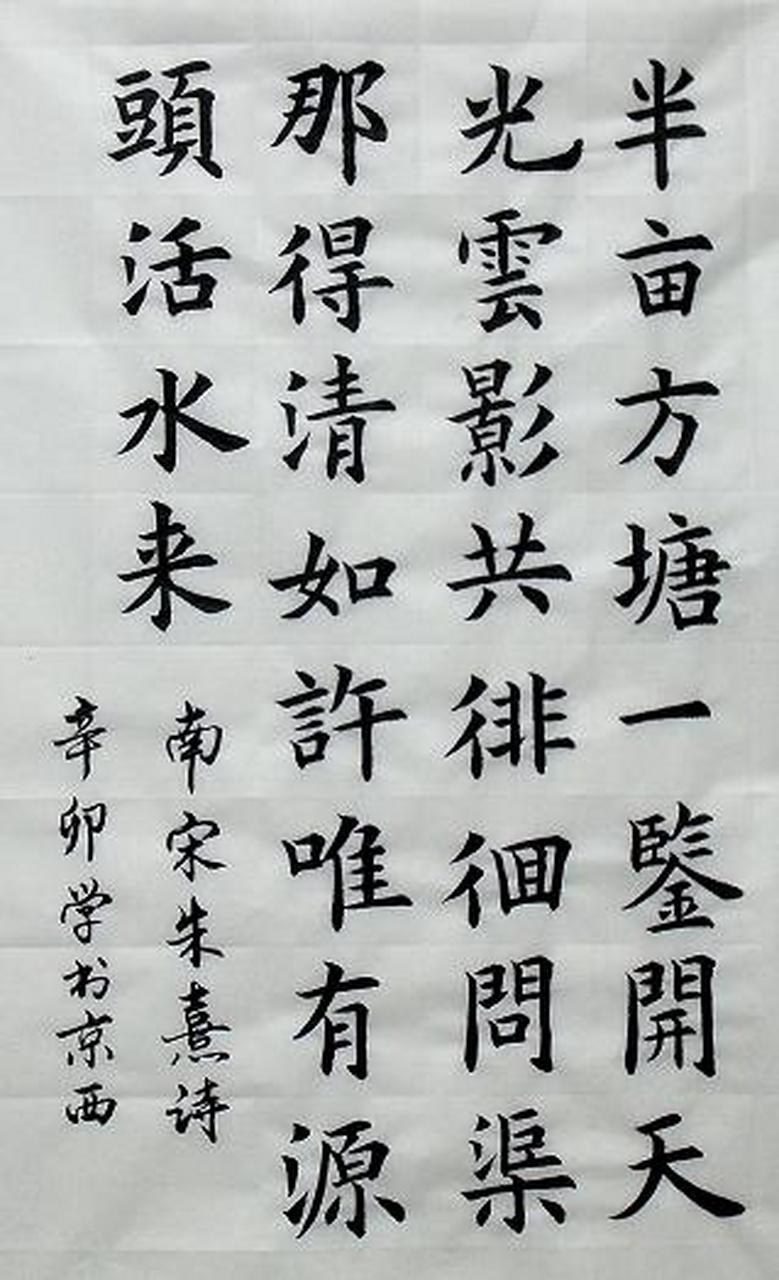 半亩方塘一鑒開天
光雲影共徘徊問渠
那得清如許唯有源
頭活水来
南宋朱熹诗
辛卯学书京西